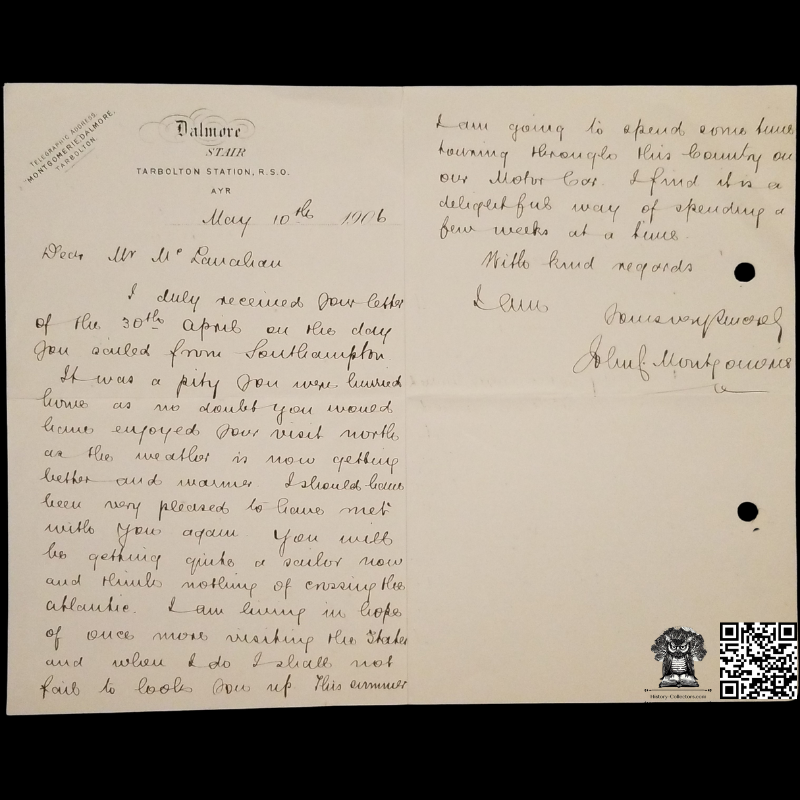 TELEGRAPHIC ADDRESS.
"MONTGOMERIE, DALMORE,
TARBOLTON."
Dalmore
STAIR
TARBOLTON STATION, R.S.O.
AYR
May 10th 1906
Dear Mr Mc Lanahan
I duly received your letter
of the 30th April on the day
you sailed from Southampton
It was a pity you were hurried
home as no doubt you would
have enjoyed your visit north
as the weather is now getting
better and warmer. I should have
been very pleased to have met
with you again. You will
be getting quite a sailor now
and think nothing of crossing the
atlantic. I am living in hope
of once more visiting the States
and when I do I shall not
fail to look you up. This summer
I am going to spend some time
touring through this Country on
our Motor Car. I find it is a
delightful way of spending a
few weeks at a time.
With kind regards
I am
Yours very sincerely
John C. Montgomerie
History-Collectors.com